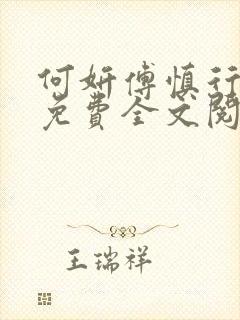 何妍傅慎行
免费全文阅
王瑞祥